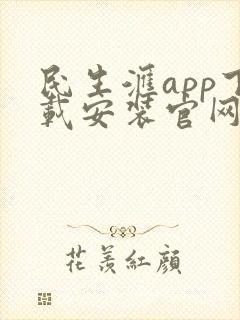 民生滙app下
載安裝官网
花羨紅顔